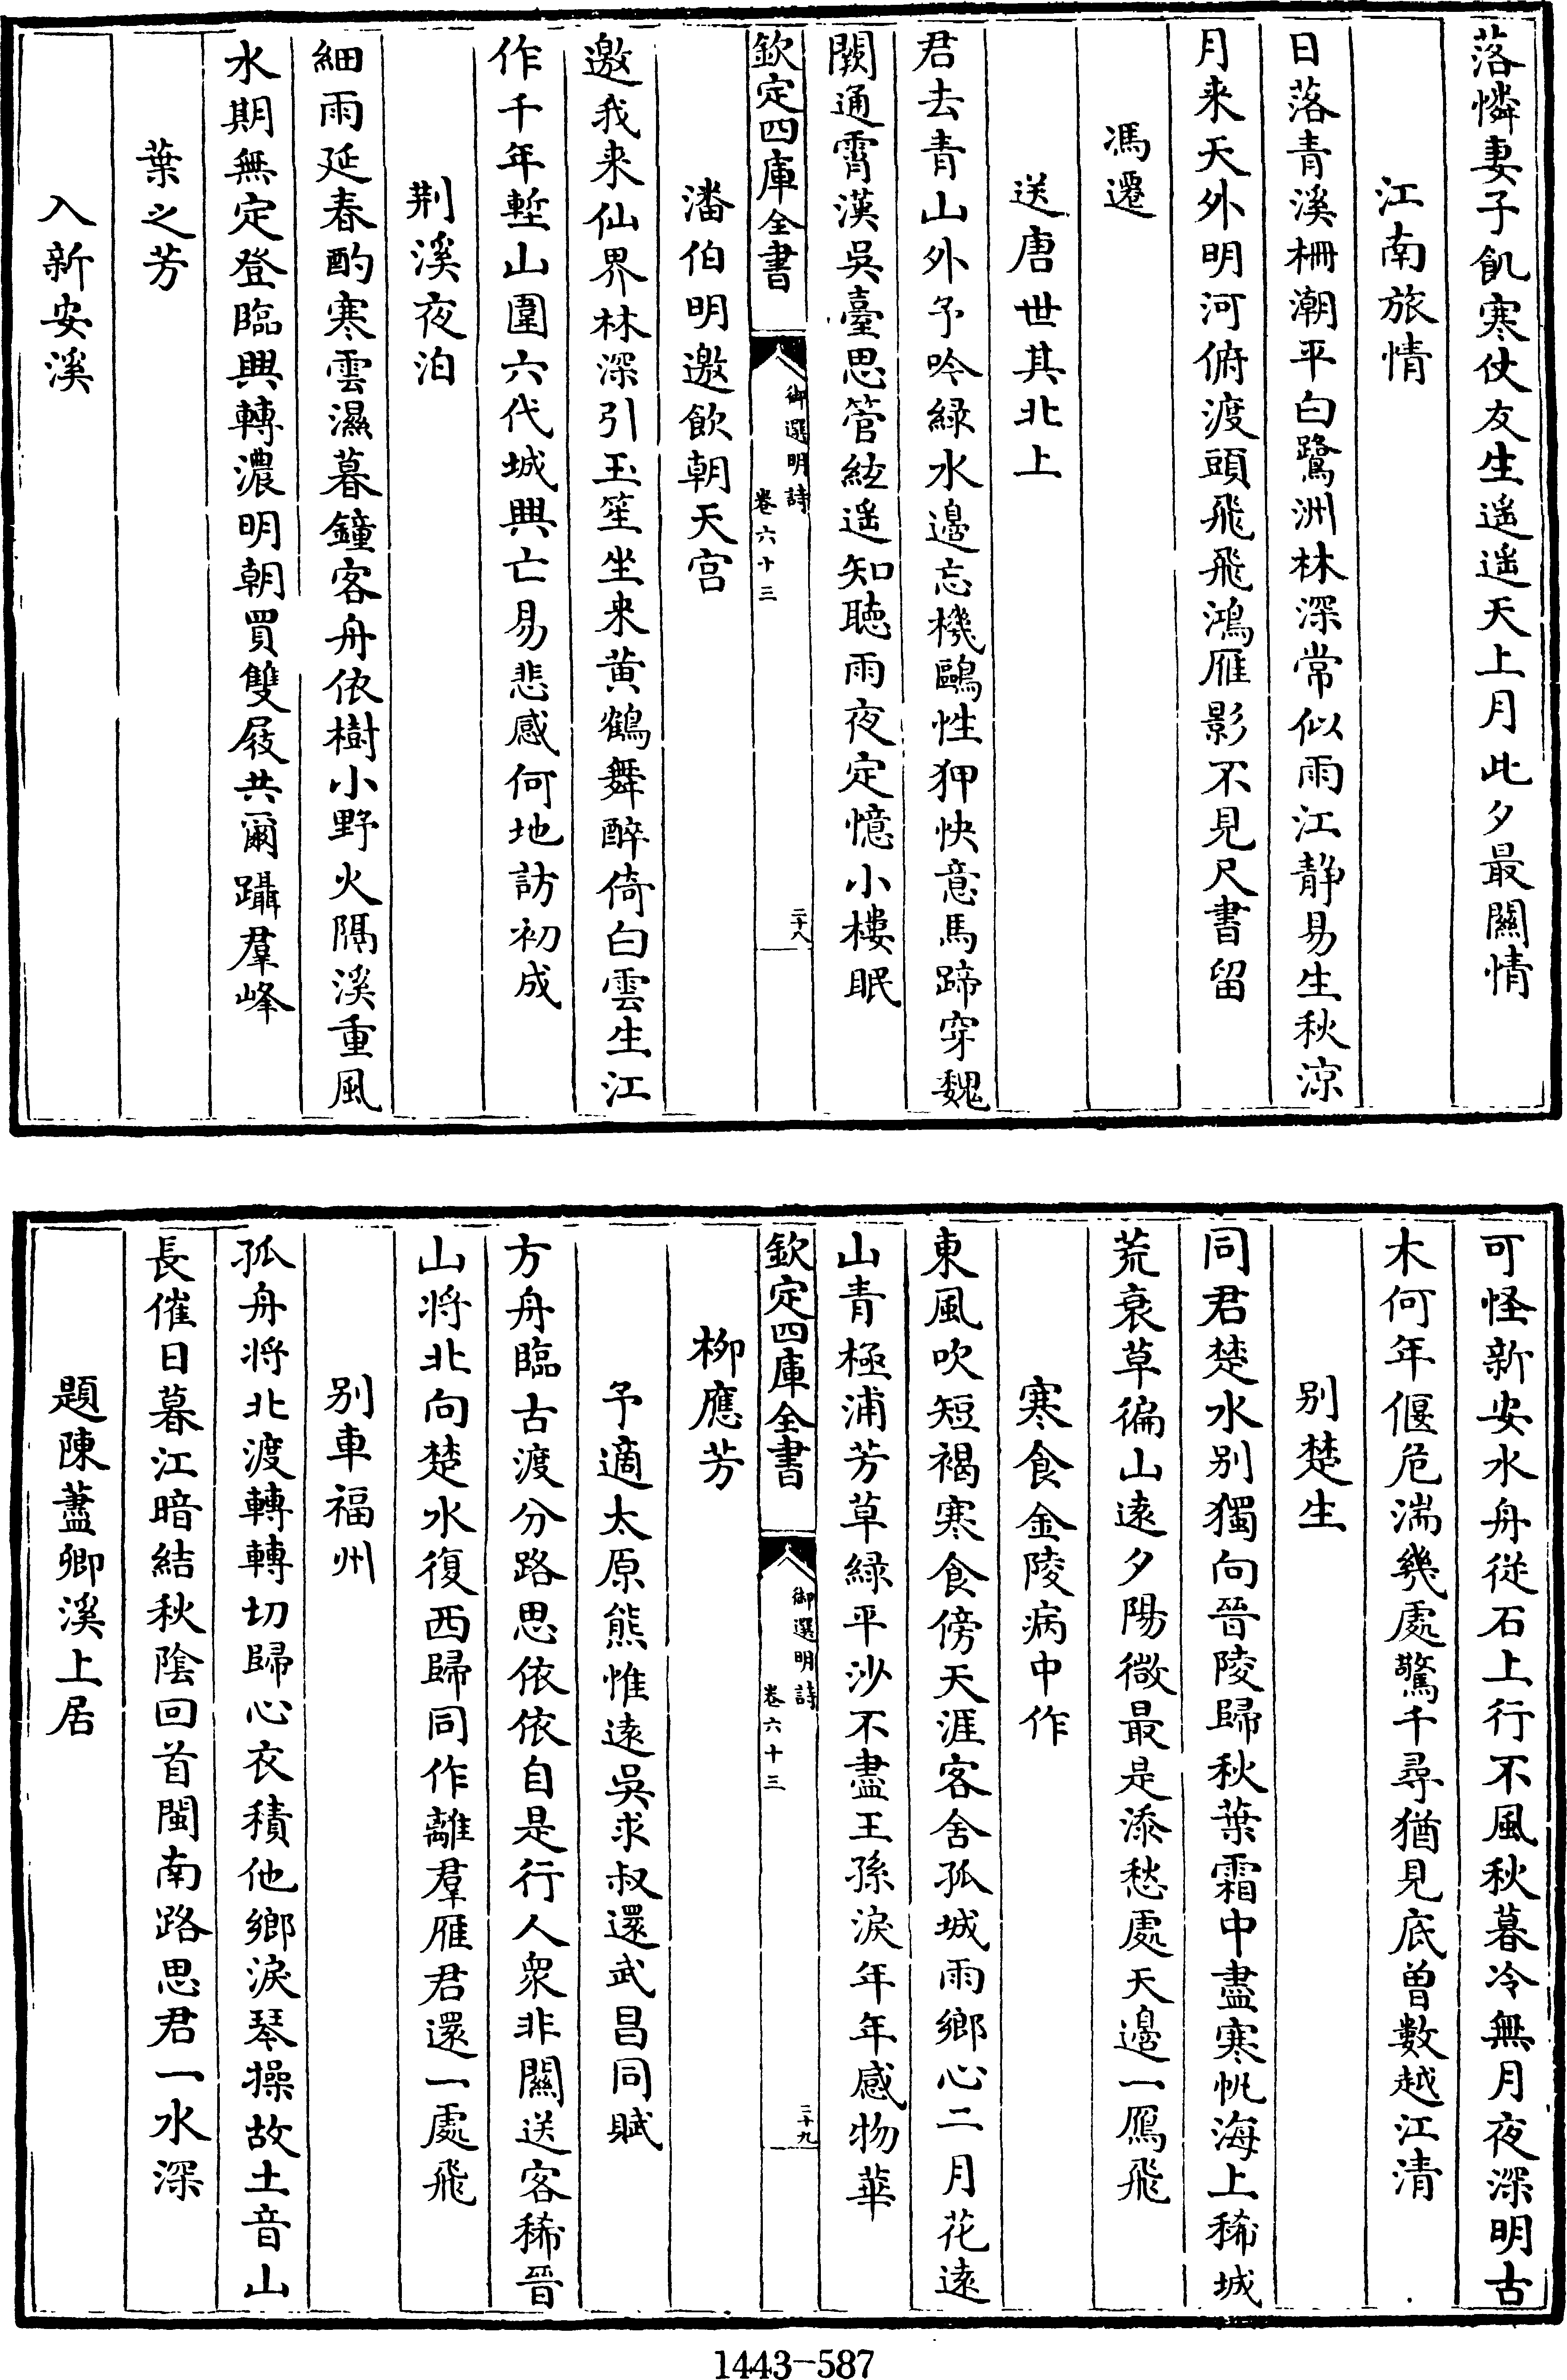 落憐妻子飢寒仗友生遥遥天上月此夕最關情
江南旅情
日落青溪柵潮平白鷺洲林深常似雨江静易生秋涼
月来天外明河俯渡頭飛飛鴻雁影不見尺書留
馮遷
送唐世其北上
君去青山外予吟緑水邉忘機鷗性狎快意馬蹄穿魏
闕通霄漢吳臺思管絃遥知聴雨夜定憶小樓眠
欽定四庫全書
御選明詩
卷六十三
二十八
潘伯明邀飲朝天宫
邀我来仙界林深引玉笙坐来黄鶴舞醉倚白雲生江
作千年塹山圍六代城興亡易悲感何地訪初成
荆溪夜泊
細雨延春酌寒雲濕暮鐘客舟依樹小野火隔溪重風
水期無定登臨興轉濃明朝買雙屐共爾躡羣峰
葉之芳
入新安溪
可怪新安水舟從石上行不風秋暮冷無月夜深明古
木何年偃危湍幾處驚千尋猶見底曽數越江清
别楚生
同君楚水别獨向晉陵歸秋葉霜中盡寒帆海上稀城
荒衰草徧山逺夕陽微最是添愁處天邉一鴈飛
寒食金陵病中作
東風吹短褐寒食傍天涯客舍孤城雨鄉心二月花逺
山青極浦芳草緑平沙不盡王孫淚年年感物華
欽定四庫全書
御選明詩
卷六十三
二十九
柳應芳
予適太原熊惟逺吳求叔還武昌同賦
方舟臨古渡分路思依依自是行人衆非關送客稀晉
山将北向楚水復西歸同作離羣雁君還一處飛
别車福州
孤舟将北渡轉轉切歸心衣積他鄉淚琴操故土音山
長催日暮江暗結秋陰回首閩南路思君一水深
題陳藎卿溪上居
1443-587